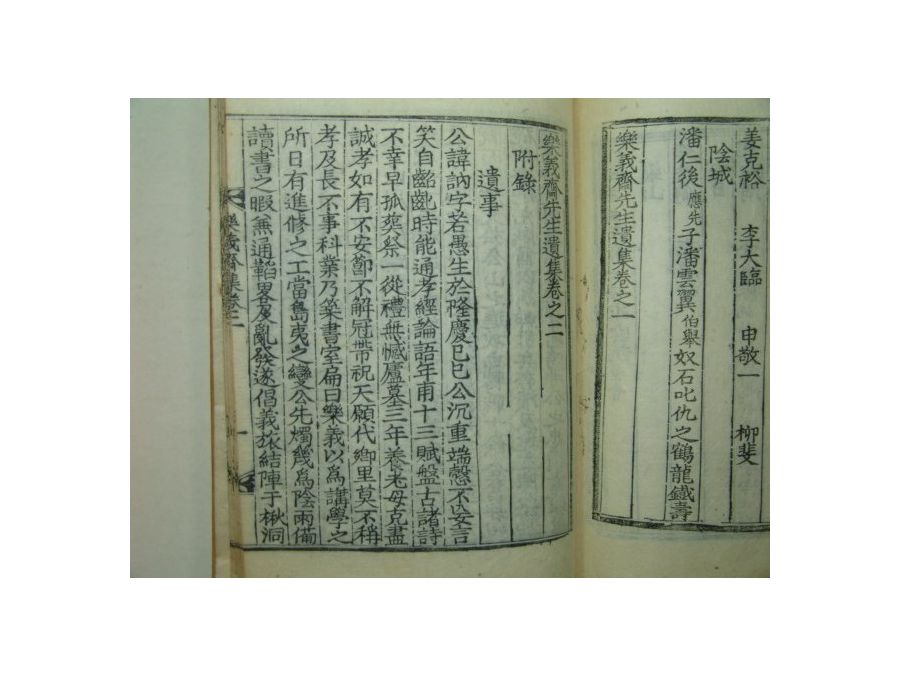 姜克裕 李大臨 申敬一 柳斐
陰城
潘仁後應先子潘雲翼伯舉奴石叱仇之鶴龍鐵壽
樂義齋先生遺集卷之一
樂義齋先生遺集卷之二
附錄
遺事
公諱訥字若愚生於隆慶己巳公沉重端慤不妄言
笑自齠齔時能通孝經論語年甫十三賦盤古諸詩
不幸早孤葬祭一從禮無憾廬墓三年養老母克盡
誠孝如有不安節不解冠帶祝天願代鄉里莫不稱
孝及長不事科業乃築書室扁曰樂義以爲講學之
所日有進修之工當島夷之變公先燭幾爲陰雨備
讀書之暇兼通韜畧及亂發遂倡義旅結陣于楸洞
樂義齋集卷二 一